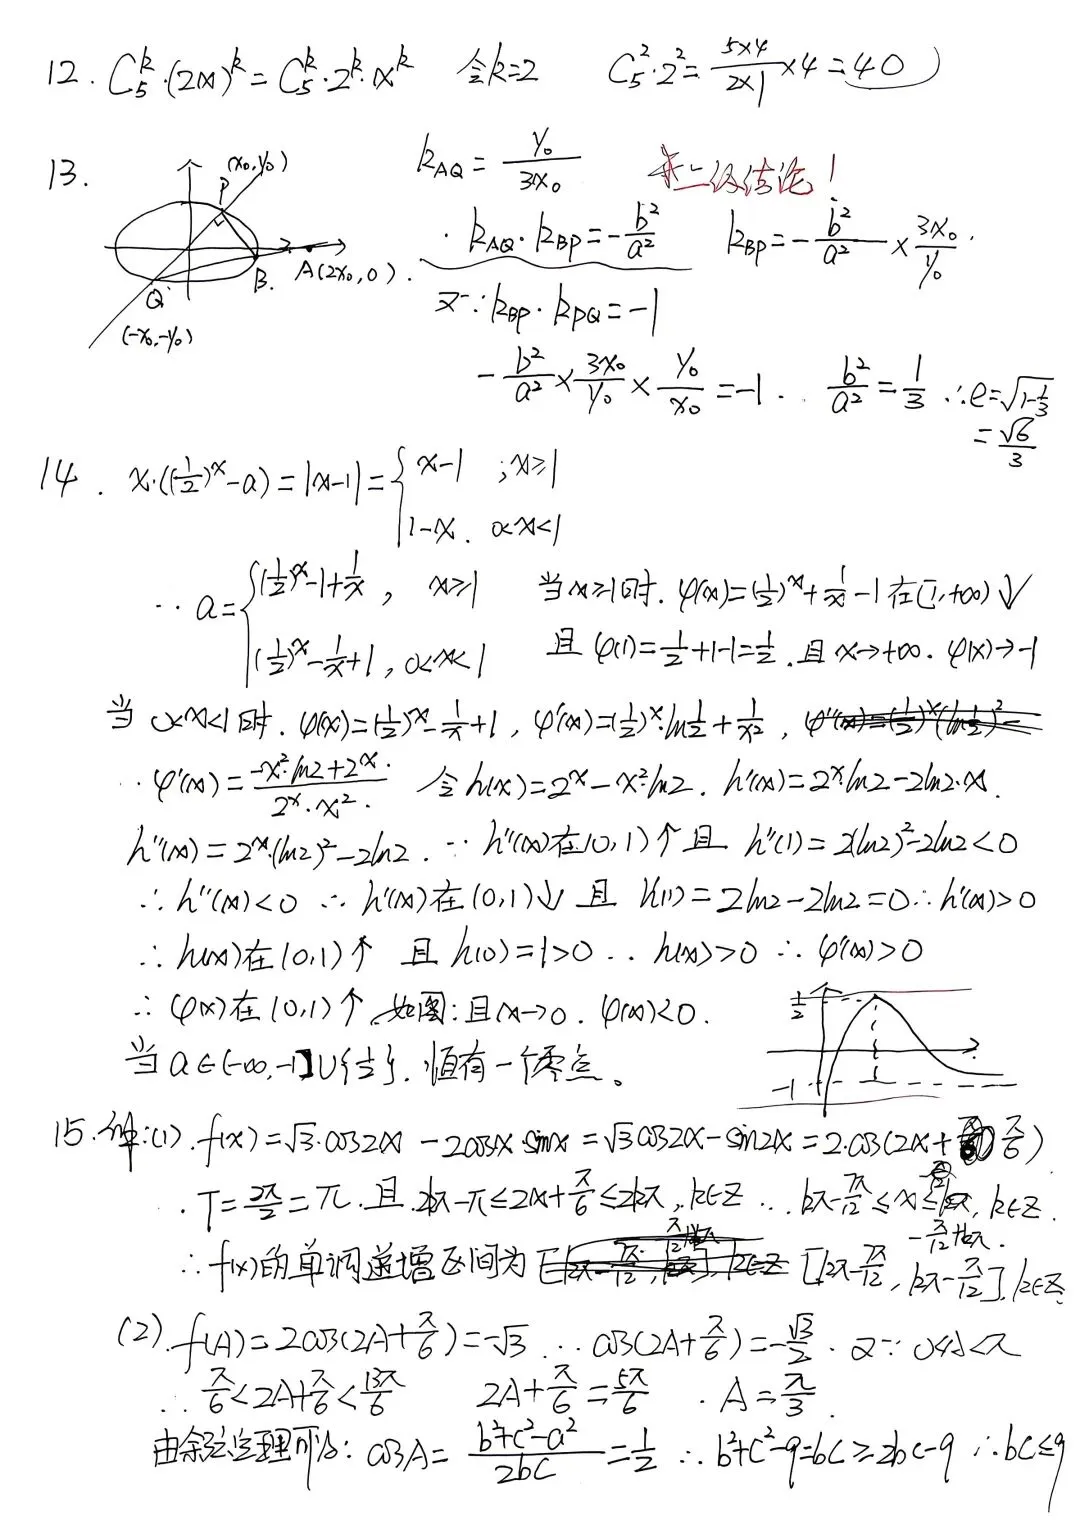 12. C₅ᵏ·(2x)ᵏ = C₅ᵏ·2ᵏ·xᵏ 令k=2 C₅²·2² = (5×4)/(2×1) ×4 = 40
13. (x₀,y₀) P B. A(2x₀,0). Q (-x₀,-y₀)
k_AQ = y₀/(3x₀) 二级结论!
k_AQ·k_BP = -b²/a² k_BP = -b²/a² × 3x₀/y₀.
又∵k_BP·k_PQ = -1
-b²/a² × 3x₀/y₀ × y₀/x₀ = -1. b²/a² = 1/3 ∴e=√(1-1/3)
= √6/3
14. x·((1/2)ˣ-a) = |x-1| = { x-1 ; x≥1
1-x. 0<x<1
∴ a = { (1/2)ˣ-1+1/x, x≥1 当x≥1时. φ(x)=(1/2)ˣ+1/x-1在[1,+∞)↓
(1/2)ˣ-1/x+1, 0<x<1 且φ(1)=1/2+1-1=1/2.且x→+∞. φ(x)→-1
当0<x<1时. φ(x)=(1/2)ˣ-1/x+1, φ'(x)=(1/2)ˣ·ln1/2+1/x²,
∴ φ'(x) = (-x²·ln2+2ˣ)/(2ˣ·x²). 令h(x)=2ˣ-x²·ln2. h'(x)=2ˣ·ln2-2ln2·x.
h''(x)=2ˣ·(ln2)²-2ln2. ∵ h''(x)在(0,1)↑且 h''(1)=2(ln2)²-2ln2<0
∴ h''(x)<0 ∴ h'(x)在(0,1)↓且 h'(1)=2ln2-2ln2=0∴h'(x)>0
∴ h(x)在(0,1)↑ 且h(0)=1>0 ∴ h(x)>0 ∴ φ'(x)>0
∴ φ(x)在(0,1)↑.如图:且x→0. φ(x)<0.
1/2 -1 1
当a∈(-∞,-1]∪{1/2}.恒有一个零点。
15.解:(1). f(x)=√3·cos2x-2cosx·sinx=√3cos2x-sin2x=2·cos(2x+π/6)
∴T=2π/2=π.且2kπ-π≤2x+π/6≤2kπ,k∈Z ∴ kπ-7π/12≤x≤-π/12+kπ, k∈Z.
∴f(x)的单调递增区间为[kπ-7π/12, kπ-π/12], k∈Z
(2). f(A)=2cos(2A+π/6)=-√3 ∴ cos(2A+π/6)=-√3/2. 又∵ 0<A<π
∴ π/6<2A+π/6<13π/6 2A+π/6=5π/6 . A=π/3.
由余弦定理可知: cosA = (b²+c²-a²)/2bc = 1/2 ∴ b²+c²-9=bc≥2bc-9 ∴bc≤9